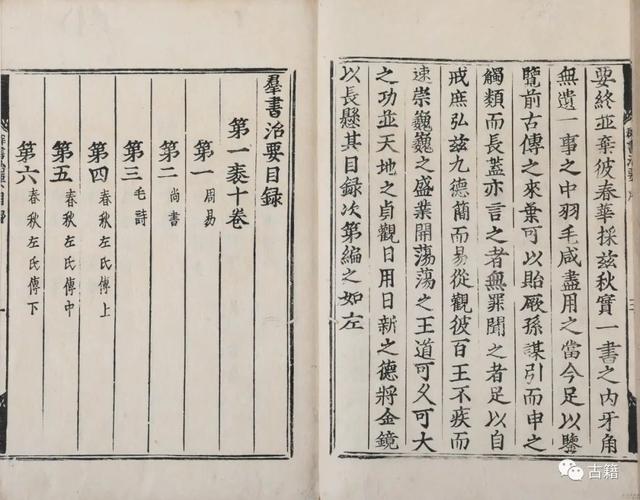 要終並棄彼春華採玆秋實一書之內牙角
無遺一事之中羽毛咸盡用之當今足以鑒
覽前古傳之來葉可以貽厥孫謀引而申之
觸類而長蓋亦言之者無罪聞之者足以自
戒庶弘玆九德簡而易從觀彼百王不疾而
速崇巍巍之盛業開蕩蕩之王道可久可大
之功並天地之貞觀日用日新之德將金鏡
以長懸其目錄次第編之如左
羣書治要目録
第一袠十卷
第一 周易
第二 尚書
第三 毛詩
第四 春秋左氏傳上
第五 春秋左氏傳中
第六 春秋左氏傳下
古籍